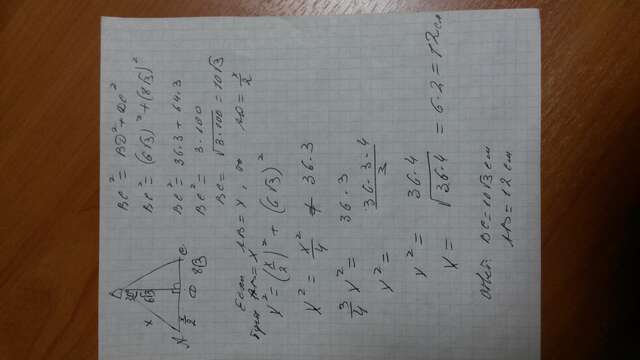 B
30°
x
6√3
A
x/2
D
C
8√3
BC² = BD² + DC²
BC² = (6√3)² + (8√3)²
BC² = 36·3 + 64·3
BC² = 3·100
BC = √3·100 = 10√3
Если AB = x, то AD = x/2
x² = (x/2)² + (6√3)²
x² = x²/4 + 36·3
3/4 x² = 36·3
x² = 36·3·4/3
x² = 36·4
x = √36·4 = 6·2 = 12 см
Ответ: BC = 10√3 см
AB = 12 см